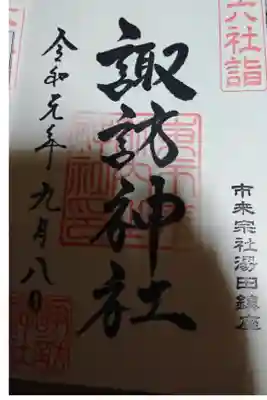 六社詣
市来宗社湯田鎮座
諏訪神社
令和元年九月八日